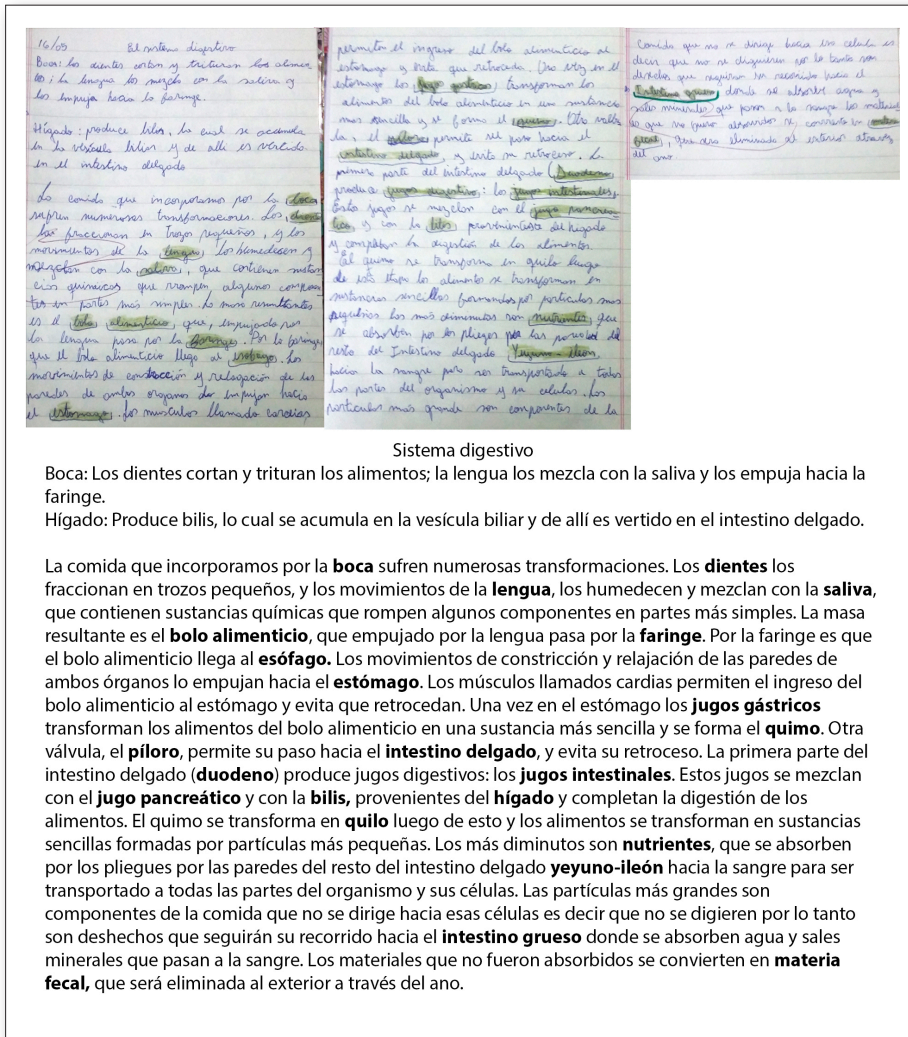 16/09 El sistema digestivo
Boca: los dientes cortan y trituran los alimen
tos; la lengua los mezcla con la saliva y
los empuja hacia la faringe.
Hígado: produce bilis, la cual se acumula
en la vesícula biliar y de allí es vertido
en el intestino delgado
La comida que incorporamos por la boca
sufren numerosas transformaciones. Los
fraccionan en trozos pequeños, y los
movimientos de la lengua, los humedecen y
mezclan con la saliva, que contienen sustan
cias químicas que rrompen, algunos compone
tes en partes más simples. La masa resultante
es el bolo alimenticio que, empujado por
la lengua pasa por la faringe. Por la faringe
que el bolo alimenticio llega al esófago. Los
movimientos de y relajación de las
paredes de ambos organos los empujan hacia
el estomago. Los musculos llamado cardias
permiten el ingreso del bolo alimenticio al
estomago y evita que retroceda. Una vez en el
estomago los jugo gastricos transforman los
alimentos del bolo alimenticio en una sustancia
mas sencilla y se forma el quimo. Otra valvu
la el permite su paso hacia el
intestino delgado, y evita su retroceso. La
primera parte del intestino delgado (Duodeno)
produce jugos digestivos: los jugos intestinales,
Estos jugos se mezclan con el jugo pancrea
tico y con la bilis provenientes del higado
y completan la digestión de los alimentos.
El quimo se transforma en quilo luego
de esta etapa los alimentos se transforman en
sustancias sencillas formandas por particulas mas
pequeñas los mas diminutos son nutrientes, que
se absorben por los pliegues por las paredes del
resto del Intestino delgado Yeyuno-ileon,
hacia la sangre para ser transportado a todas
las partes del organismo y su celulas. Las
particulas mas grande son componentes de la
Comida que no se dirige hacia esa celula es
decir que no se digieren por lo tanto son
desechos que seguiran su recorrido hacia el
Intestino grueso, donde se absorbe agua y
sales minerales que pasan a la sangre los materia
que no fueron absorbidos se convierte en materia
fecal, que sera eliminado al exterior atraves
del ano.
Sistema digestivo
Boca: Los dientes cortan y trituran los alimentos; la lengua los mezcla con la saliva y los empuja hacia la
faringe.
Hígado: Produce bilis, lo cual se acumula en la vesícula biliar y de allí es vertido en el intestino delgado.
La comida que incorporamos por la boca sufren numerosas transformaciones. Los dientes los
fraccionan en trozos pequeños, y los movimientos de la lengua, los humedecen y mezclan con la saliva,
que contienen sustancias químicas que rompen algunos componentes en partes más simples. La masa
resultante es el bolo alimenticio, que empujado por la lengua pasa por la faringe. Por la faringe es que
el bolo alimenticio llega al esófago. Los movimientos de constricción y relajación de las paredes de
ambos órganos lo empujan hacia el estómago. Los músculos llamados cardias permiten el ingreso del
bolo alimenticio al estómago y evita que retrocedan. Una vez en el estómago los jugos gástricos
transforman los alimentos del bolo alimenticio en una sustancia más sencilla y se forma el quimo. Otra
válvula, el píloro, permite su paso hacia el intestino delgado, y evita su retroceso. La primera parte del
intestino delgado (duodeno) produce jugos digestivos: los jugos intestinales. Estos jugos se mezclan
con el jugo pancreático y con la bilis, provenientes del hígado y completan la digestión de los
alimentos. El quimo se transforma en quilo luego de esto y los alimentos se transforman en sustancias
sencillas formadas por partículas más pequeñas. Los más diminutos son nutrientes, que se absorben
por los pliegues por las paredes del resto del intestino delgado yeyuno-ileón hacia la sangre para ser
transportado a todas las partes del organismo y sus células. Las partículas más grandes son
componentes de la comida que no se dirige hacia esas células es decir que no se digieren por lo tanto
son deshechos que seguirán su recorrido hacia el intestino grueso donde se absorben agua y sales
minerales que pasan a la sangre. Los materiales que no fueron absorbidos se convierten en materia
fecal, que será eliminada al exterior a través del ano.